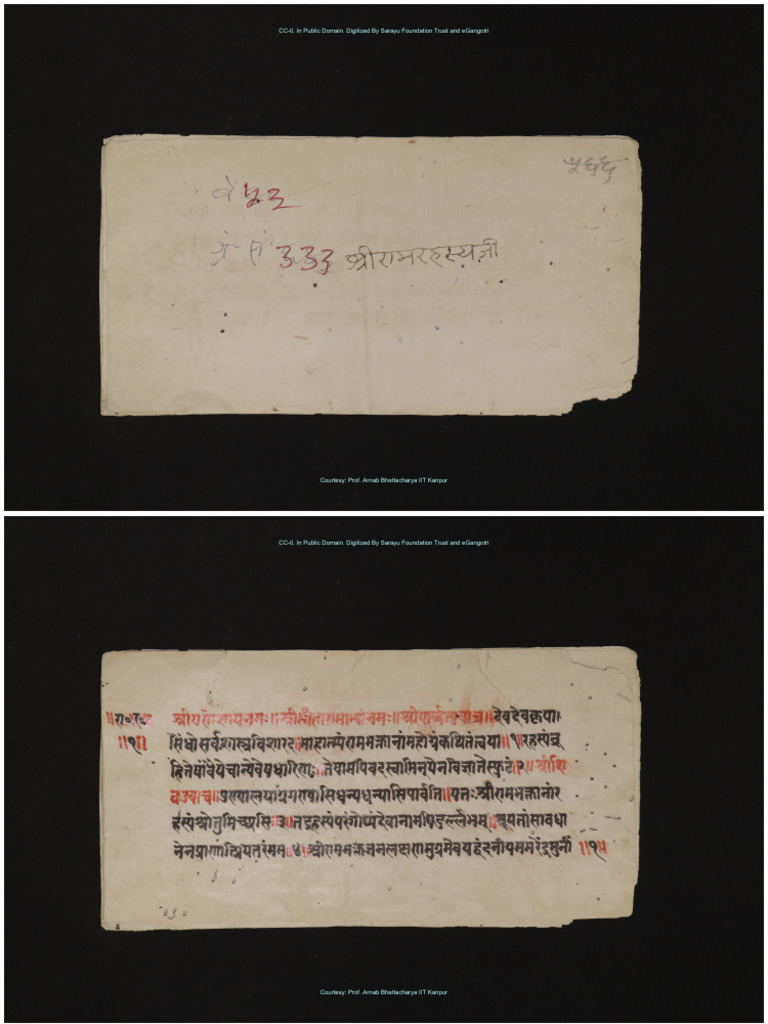 CC-0. In Public Domain. Digitized By Sarayu Foundation Trust and eGangotri
५६६
वे ५३
ग्रं सं ३३३ श्रीरामरहस्यजी
Courtesy: Prof. Arnab Bhattacharya IIT Kanpur
CC-0. In Public Domain. Digitized By Sarayu Foundation Trust and eGangotri
॥रा०र० श्रीगणेशायनमः॥श्रीसीतारामाभ्यांनमः॥श्रीपार्वत्युवाच॥देवदेवकृपा
॥१॥ सिंधोसर्वशास्त्रविशारद॥माहात्म्यंरामभक्तानांमहोयंकथितंत्वया॥१॥रहस्यंब्रू
हितेषांवैयेचान्येवेषधारिणः॥तेषामपिवदस्वामिन्येनविज्ञातेस्फुटं॥२॥श्रीशि
वउवाच॥पुण्यासिधन्यधन्यासिपार्वति॥यतःश्रीरामभक्तानांर
हस्यंश्रोतुमिच्छसि॥३॥तद्रहस्यंपरंगोप्यंदेवानामपिदुर्ल्लभम्॥श्रूयतांसावधा
नेनप्राणात्प्रियतरंमम॥४॥श्रीरामभक्त ॥१॥
Courtesy: Prof. Arnab Bhattacharya IIT Kanpur